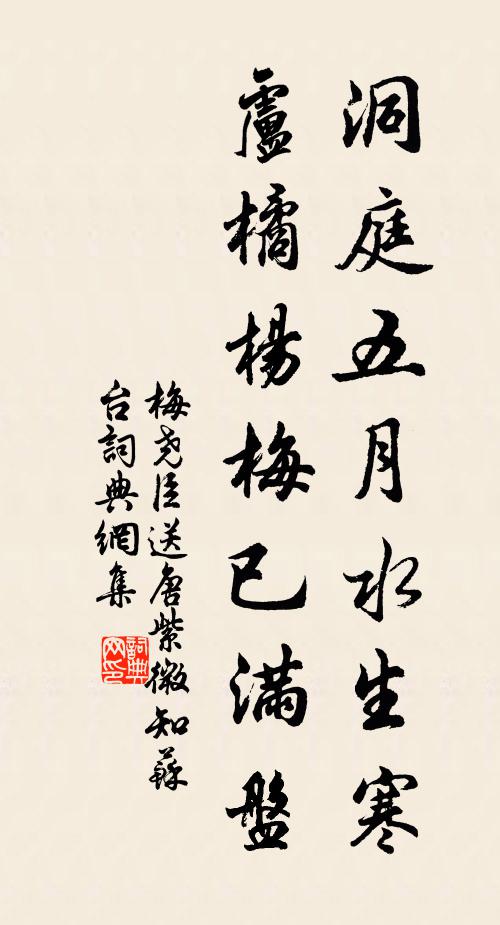 洞庭五月水生寒
盧橘楊梅已滿盤
梅尧臣送唐紫微知蘇
台詞典網集
詞典網印